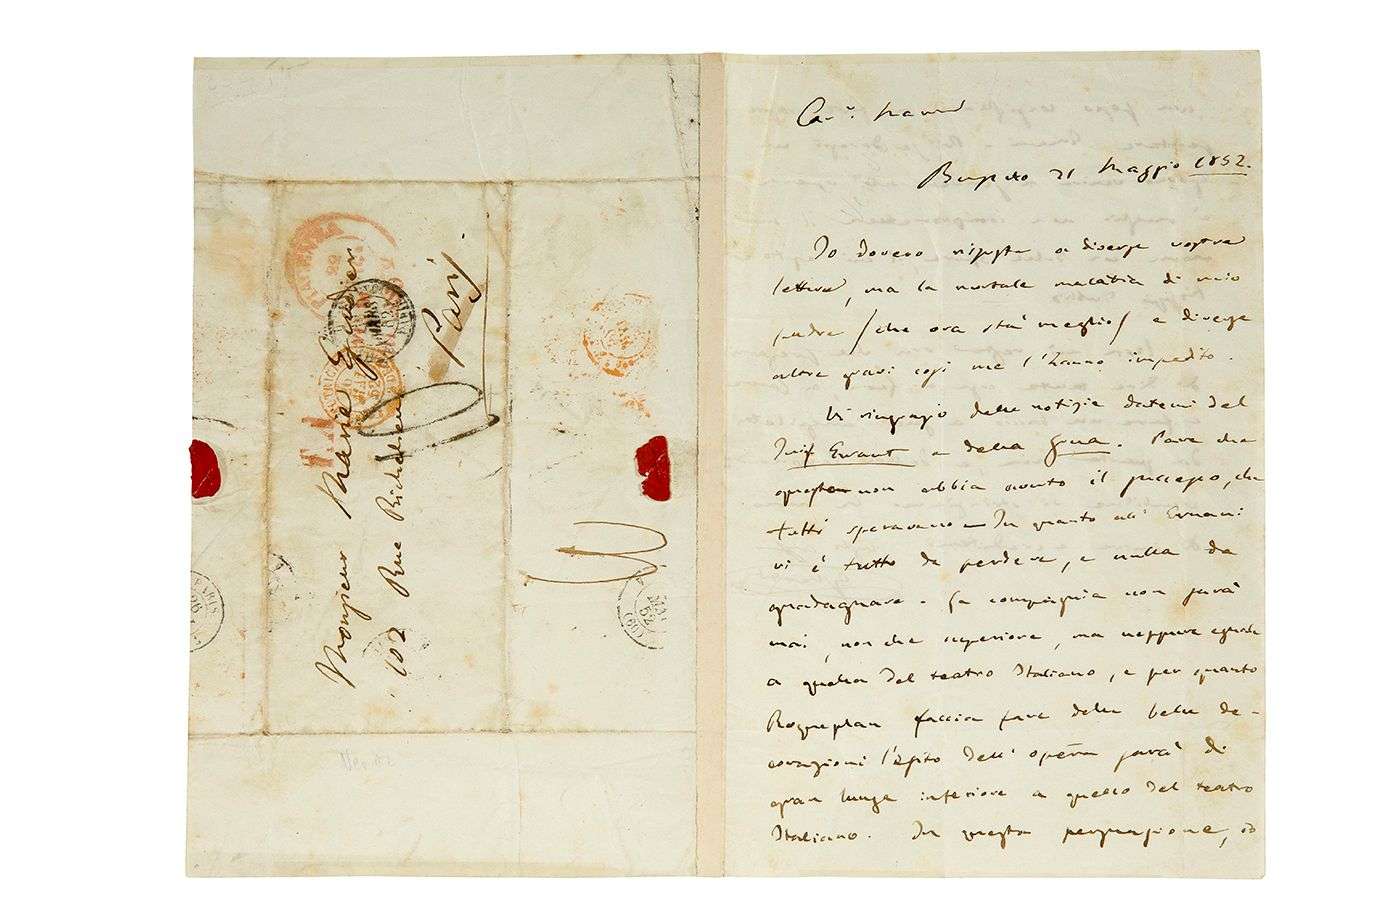 Monsieur Marie Escudier
102 Rue Richelieu
Paris
PIACENZA
PARIS
Car.º Marie
Busseto 21 Maggio 1852.
Io dovevo risposta a diverse vostre
lettere, ma la mortale malattia di mio
padre (che ora sta meglio) e diverse
altre gravi cose me l'hanno impedito.
Vi ringrazio delle notizie datemi del
Juif Errant e della . Pare che
questa non abbia avuto il successo, che
tutti speravano – In quanto all' Ernani
vi è tutto da perdere, e nulla da
guadagnare. La compagnia non sarà
mai, non che superiore, ma neppure eguale
a quella del teatro Italiano, e per quanto
Roqueplan faccia fare delle belle de-
corazioni l'esito dell' opera sarà di
gran lunga inferiore a quello del teatro
Italiano. In questa persuasione, io